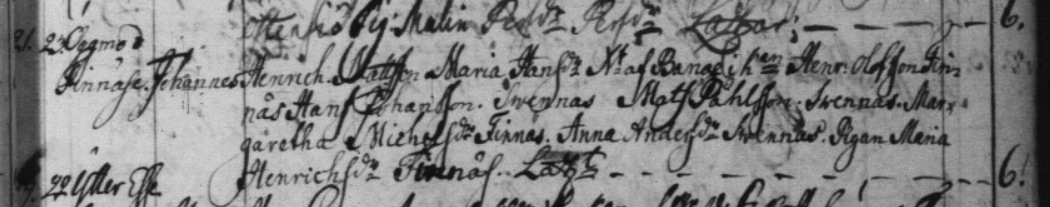 Pig. Malin Persdr. Persdr. 6.
21. 23 Oegmod
Finnäs. Johannes Henrich Mattson Maria Hansdr. Nt af Henr: Olofsson Fin-
näs Hans Johansson. Swennas Mats Påhlsson. Swennäs. Mar-
garetha Michelsdr. Finnäs. Anna Andersdr. Swennäs. Pigan Maria
Henrichsdr. Finnäs. 6.
22 Ytter Esse